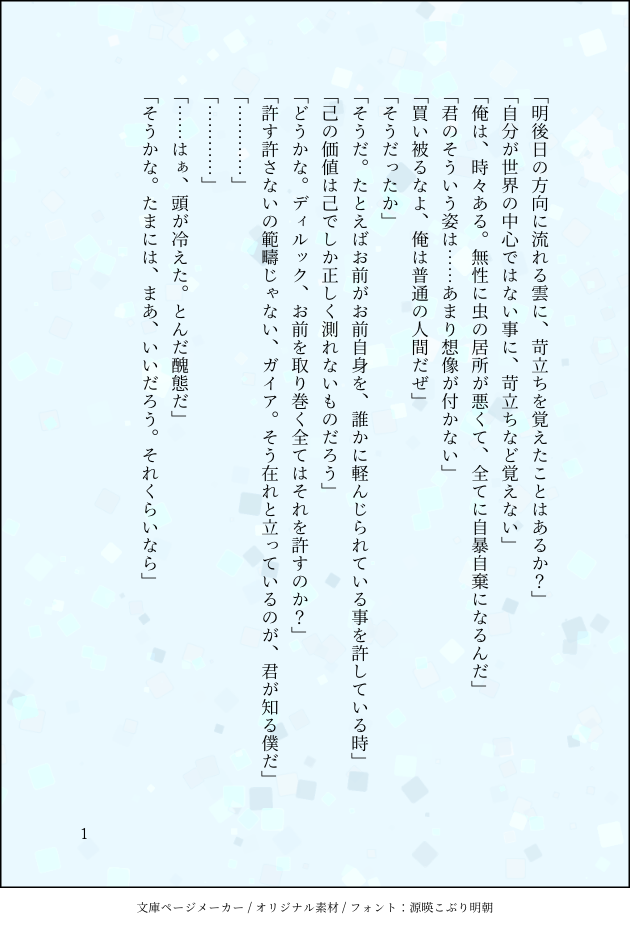 「明後日の方向に流れる雲に、苛立ちを覚えたことはあるか？」
「自分が世界の中心ではない事に、苛立ちなど覚えない」
「俺は、時々ある。無性に虫の居所が悪くて、全てに自暴自棄になるんだ」
「君のそういう姿は……あまり想像が付かない」
「買い被るなよ、俺は普通の人間だぜ」
「そうだったか」
「そうだ。たとえばお前がお前自身を、誰かに軽んじられている事を許している時」
「己の価値は己でしか正しく測れないものだろう」
「どうかな。ディルック、お前を取り巻く全てはそれを許すのか？」
「許す許さないの範疇じゃない、ガイア。そう在れと立っているのが、君が知る僕だ」
「…………」
「…………」
「……はぁ、頭が冷えた。とんだ醜態だ」
「そうかな。たまには、まあ、いいだろう。それくらいなら」
1
文庫ページメーカー / オリジナル素材 / フォント：源暎こぶり明朝